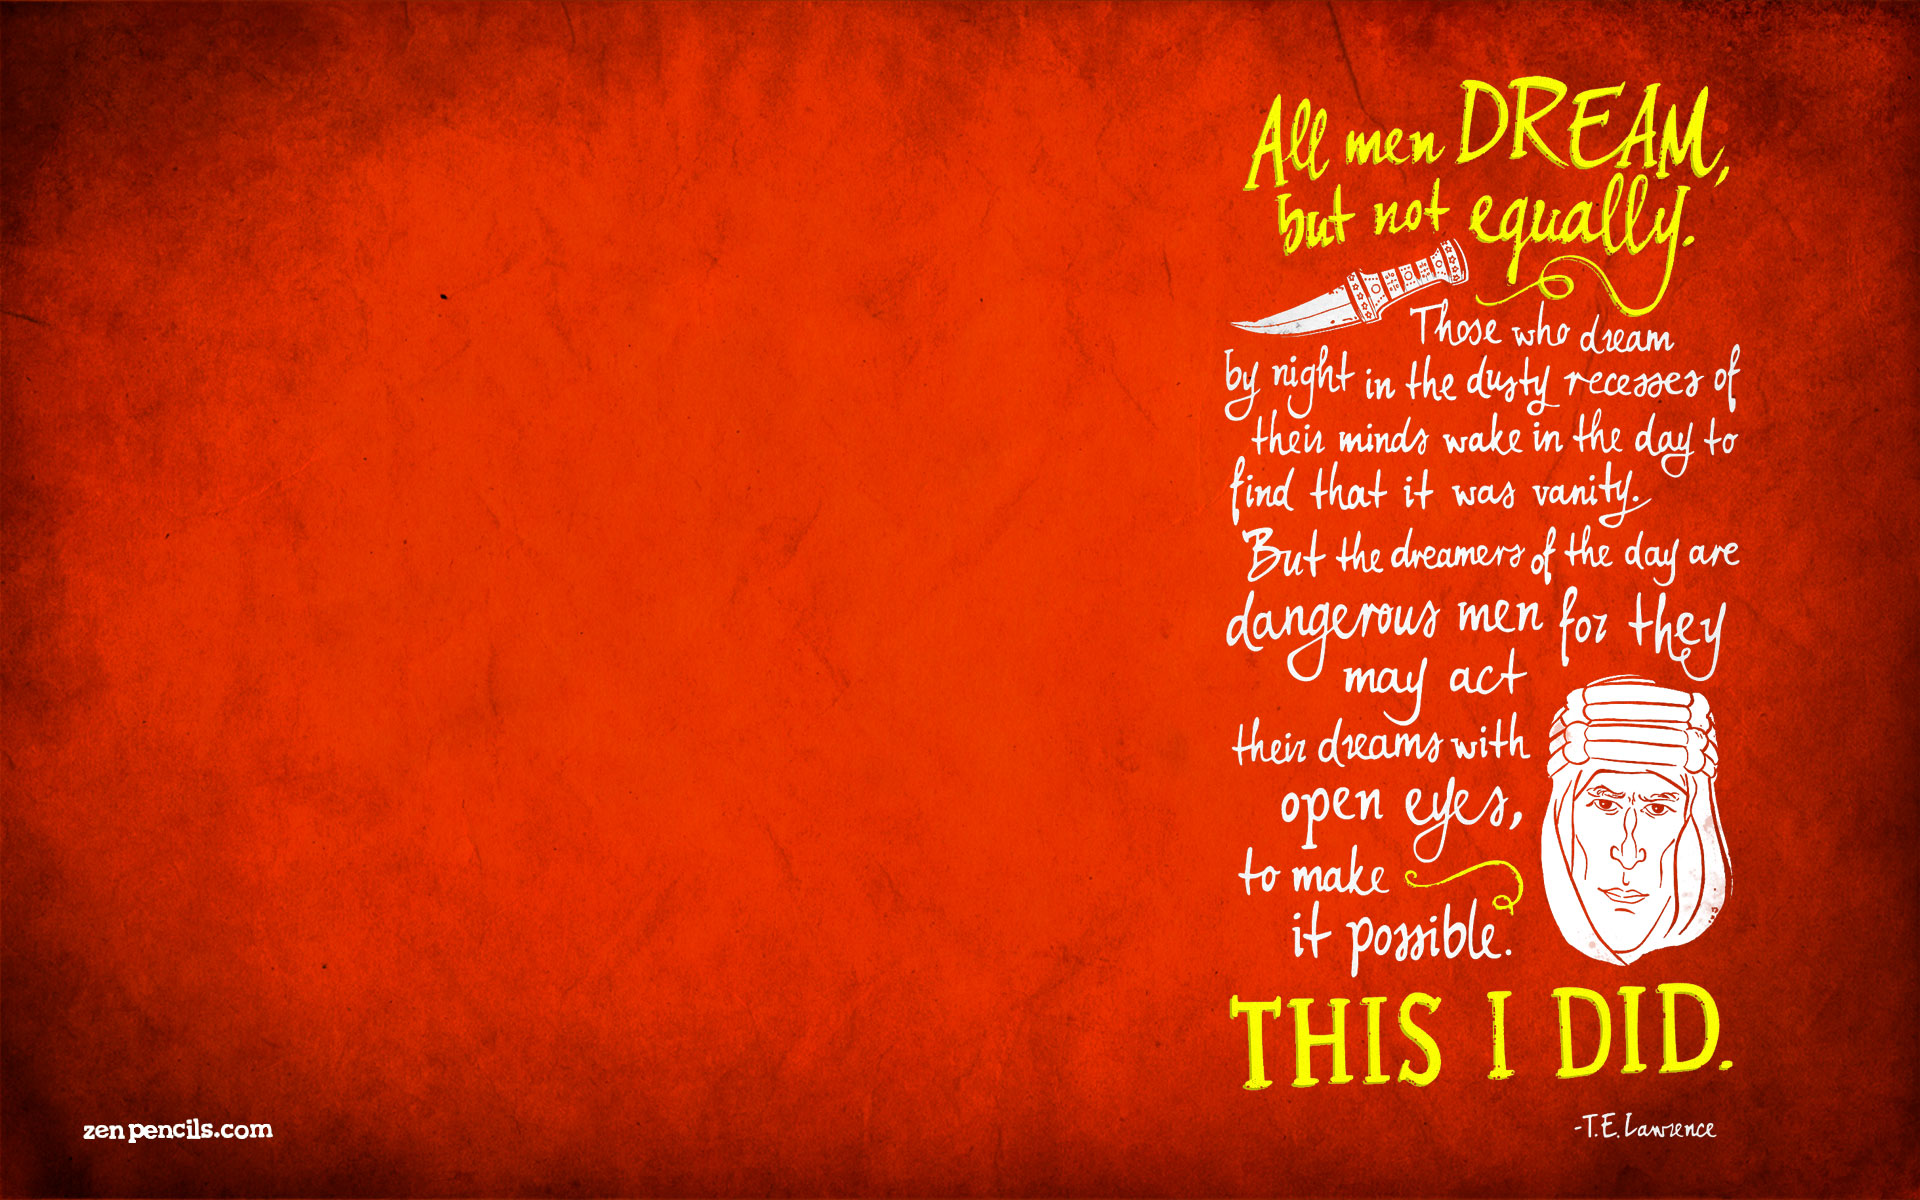 All men DREAM,
but not equally.
Those who dream
by night in the dusty recesses of
their minds wake in the day to
find that it was vanity.
But the dreamers of the day are
dangerous men for they
may act
their dreams with
open eyes,
to make
it possible.
THIS I DID.
-T.E. Lawrence
zenpencils.com